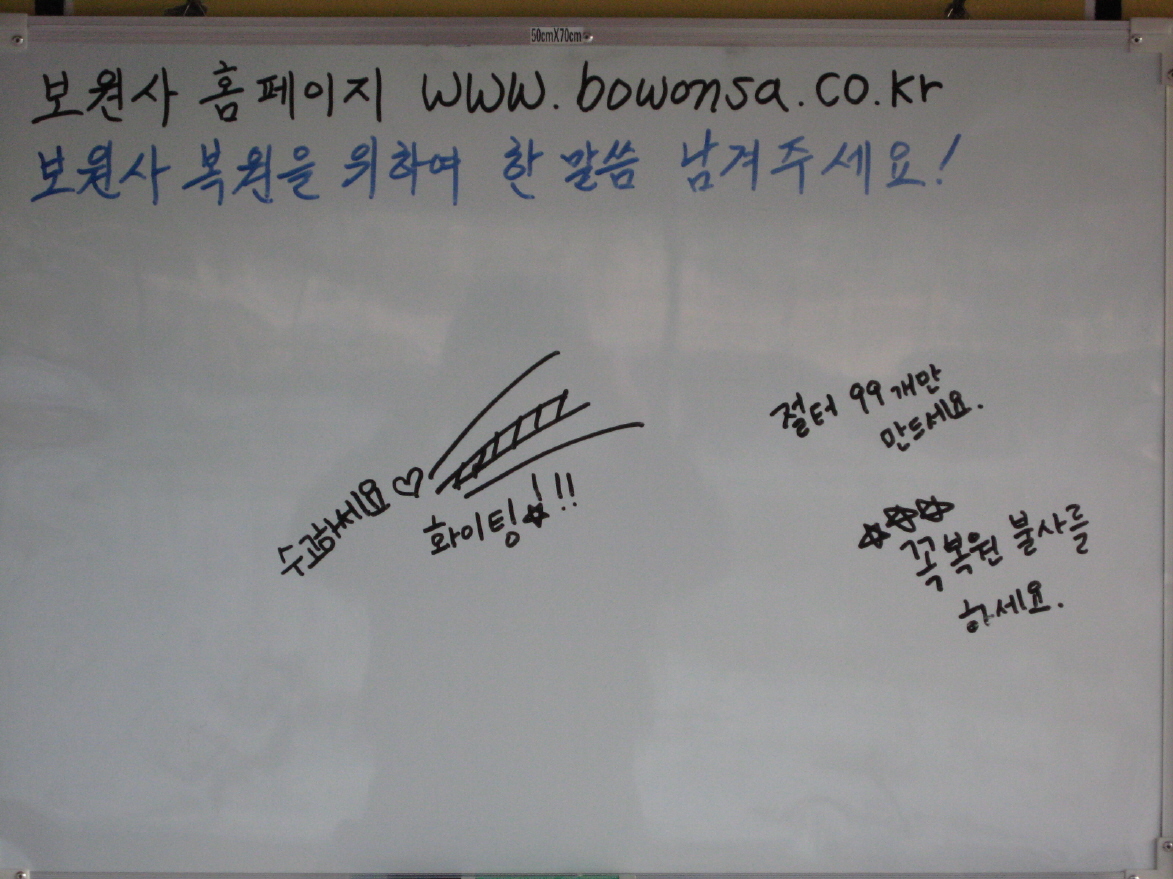 50cmX70cm
보원사 홈페이지 www.bowonsa.co.kr
보원사 복원을 위하여 한 말씀 남겨주세요!
절터 99개만
만드세요.
수고하세요♡
화이팅☆!!!
☆☆☆
꼭 복원 불사를
하세요.